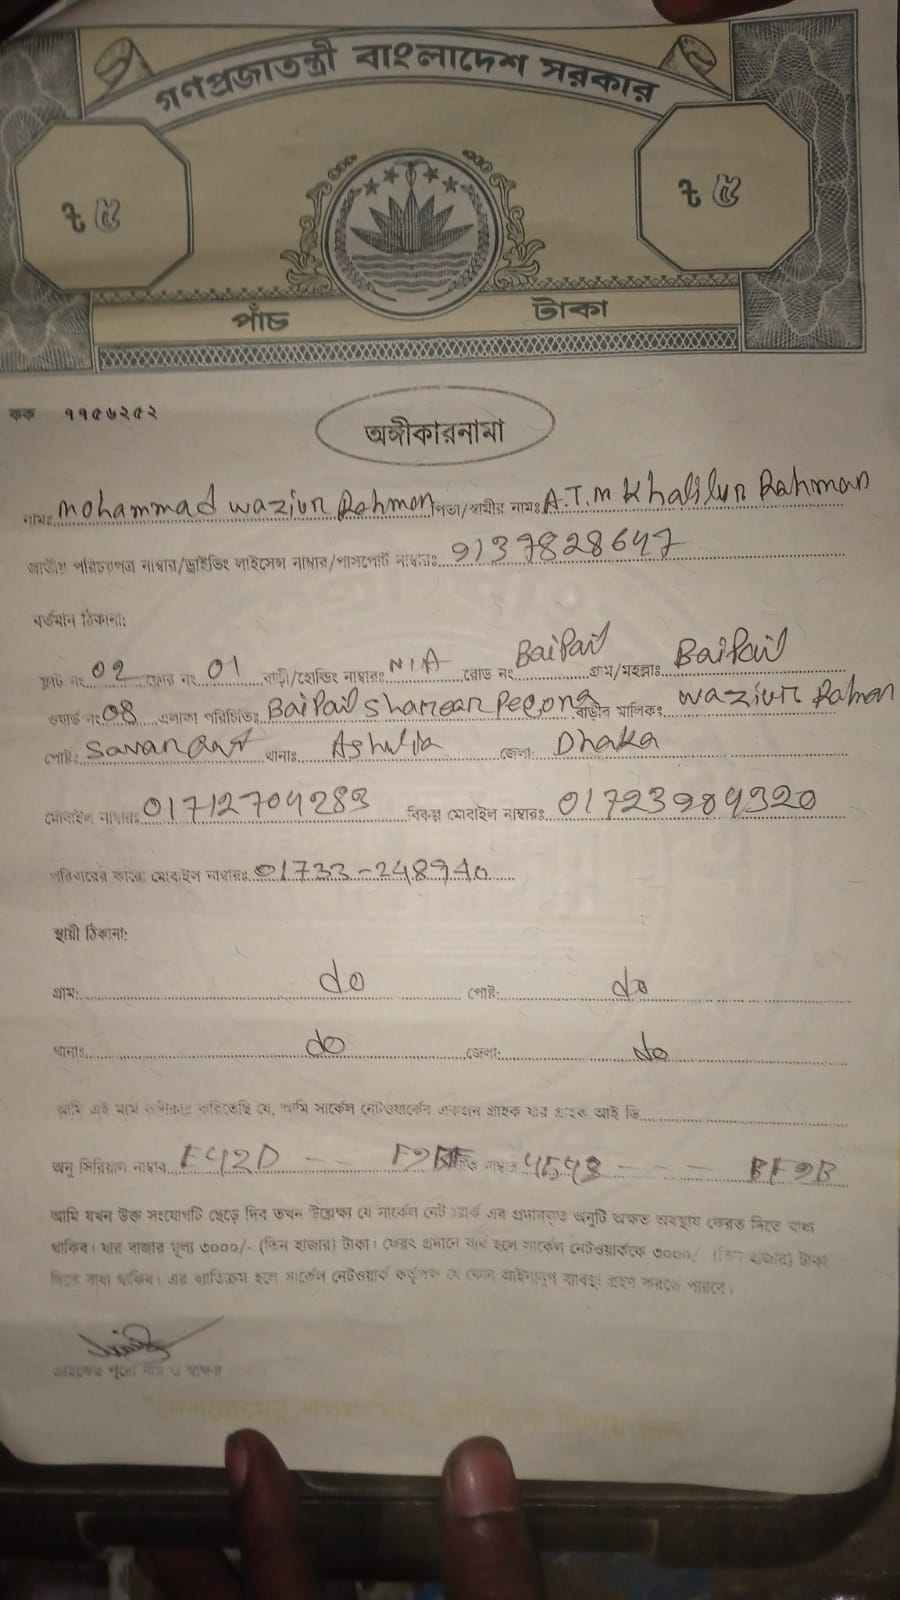 গণপ্রজাতন্ত্রী বাংলাদেশ সরকার
৳ ৫ ৳ ৫
পাঁচ টাকা
কক ৭৭৫৬২৫২
অঙ্গীকারনামা
নামঃ Mohammad Waziur Rahman পিতা/স্বামীর নামঃ A.T.M Khalilur Rahman
জাতীয় পরিচয়পত্র নাম্বার/ড্রাইভিং লাইসেন্স নাম্বার/পাসপোর্ট নাম্বারঃ 9137828647
বর্তমান ঠিকানা:
ফ্লাট নং 02 ফ্লোর নং 01 বাড়ী/হোল্ডিং নাম্বারঃ N/A রোড নং Baipail গ্রাম/মহল্লাঃ Baipail
ওয়ার্ড নং 08 এলাকা পরিচিতিঃ Baipail বাড়ীর মালিকঃ Waziur Rahman
পোষ্টঃ থানাঃ Ashulia জেলা: Dhaka
মোবাইল নাম্বারঃ 01712704283 বিকল্প মোবাইল নাম্বারঃ 01723984920
পরিবারের কারো মোবাইল নাম্বারঃ 01733-248940
স্থায়ী ঠিকানা:
গ্রাম: do পোষ্ট: do
থানাঃ do জেলা: do
আমি এই মর্মে অঙ্গীকার করিতেছি যে, আমি সার্কেল নেটওয়ার্কের একজন গ্রাহক যার গ্রাহক আই ডি
অনু সিরিয়াল নাম্বার F42D -- নাম্বার 4543 --- BF9B
আমি যখন উক্ত সংযোগটি ছেড়ে দিব তখন উল্লেখ্য যে সার্কেল নেট ওয়ার্ক এর প্রদানকৃত অনুটি অক্ষত অবস্থায় ফেরত দিতে বাধ্য
থাকিব। যার বাজার মূল্য ৩০০০/- (তিন হাজার) টাকা। ফেরৎ প্রদানে ব্যর্থ হলে সার্কেল নেটওয়ার্ককে ৩০০০/ (তিন হাজার) টাকা
দিতে বাধ্য থাকিব। এর ব্যতিক্রম হলে সার্কেল নেটওয়ার্ক কর্তৃপক্ষ যে কোন আইনানুগ ব্যবস্থা গ্রহণ করতে পারবে।
গ্রাহকের পুরো নাম ও স্বাক্ষর